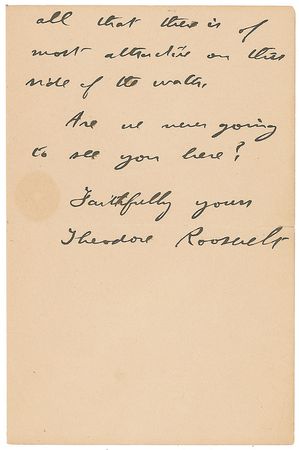 all that there is of
most attractive on this
side of the water.
Are we never going
to see you here?
Faithfully yours
Theodore Roosevelt